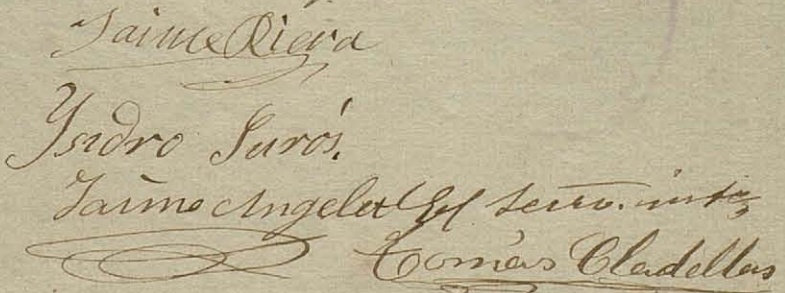 Jaime Riera
Ysidro Surós.
Jaime Angelet El Secro. int.
Tomás Cladellas